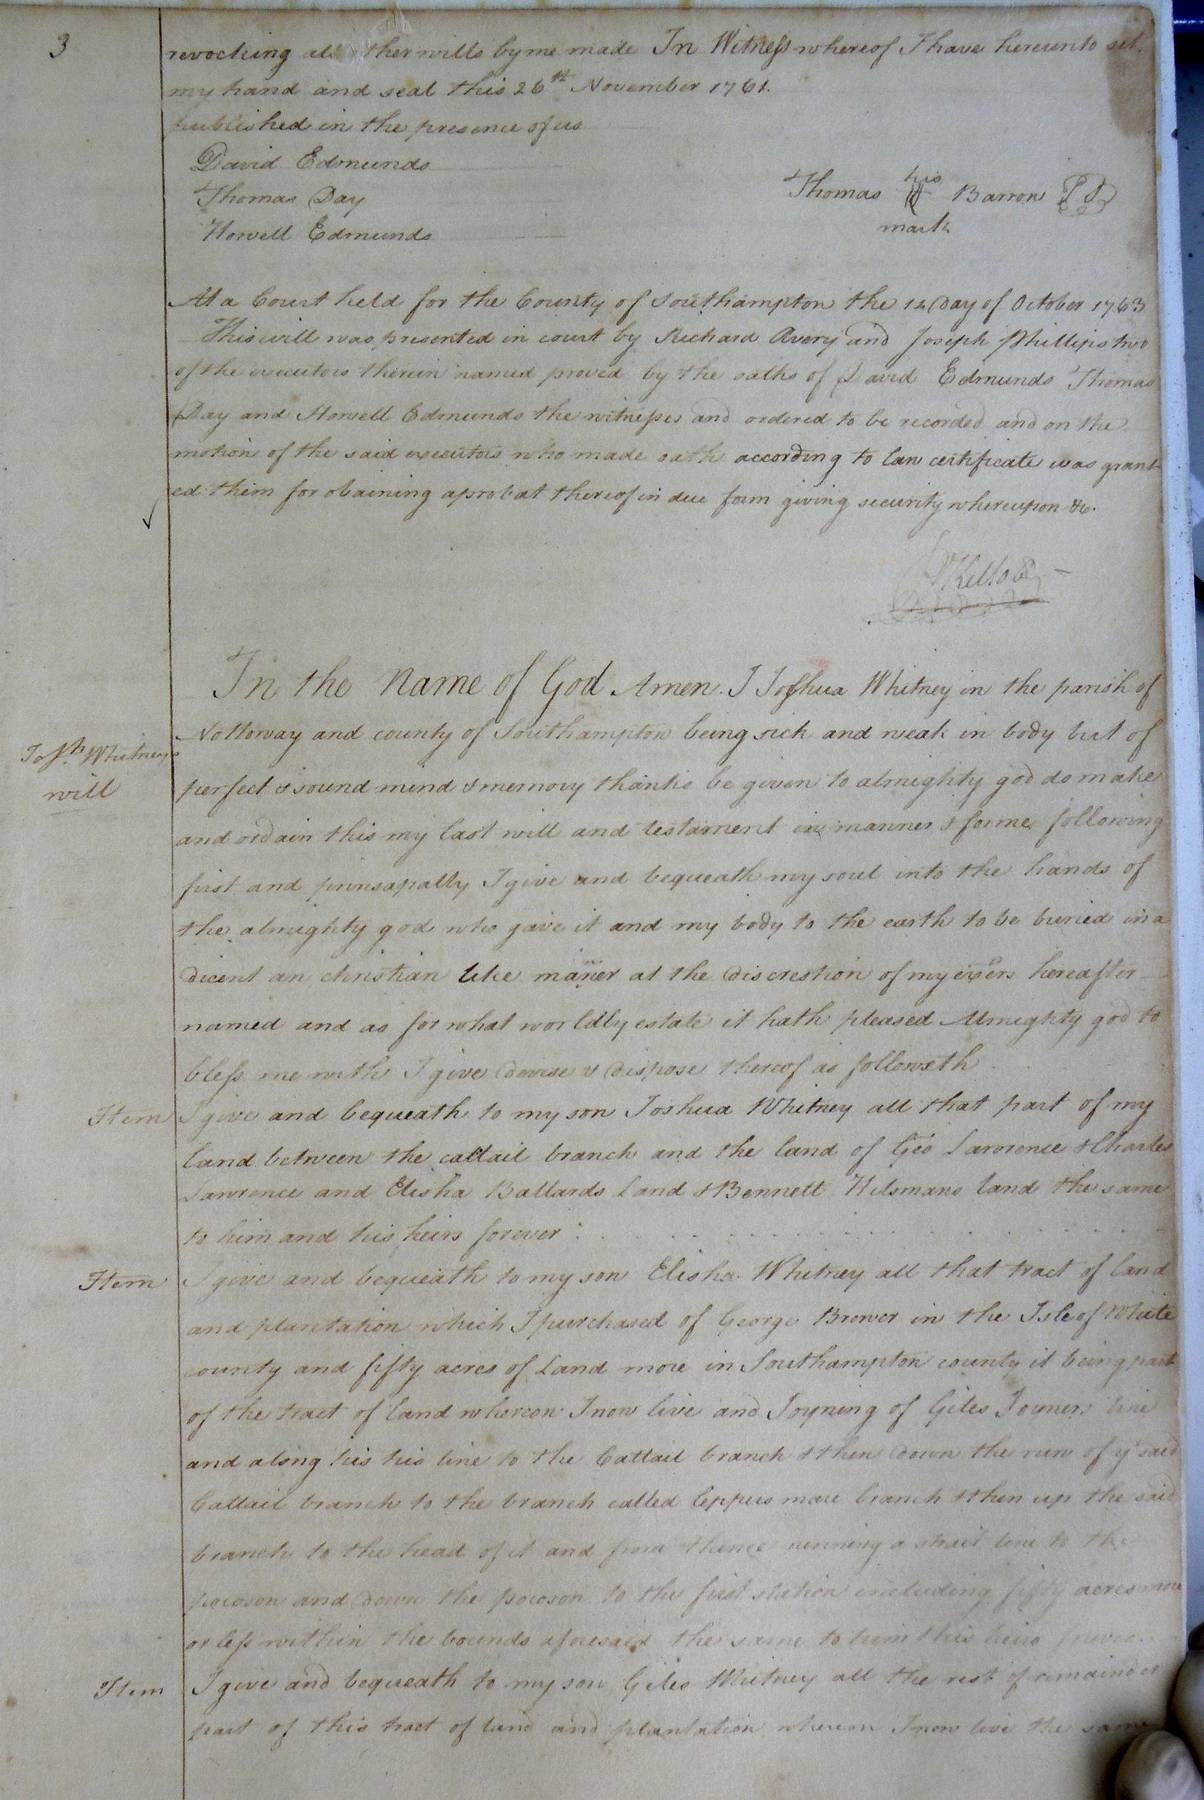 3
revocking all other wills by me made In Witness whereof I have hereunto set
my hand and seal this 26th November 1761.
published in the presence of us
David Edmunds
Thomas Day
Howell Edmunds
Thomas his Barron
mark
At a Court held for the County of Southampton the 14 Day of October 1763
This will was presented in court by Richard Avery and Joseph Phillips two
of the executors therein named proved by the oaths of David Edmunds Thomas
Day and Howell Edmunds the witnesses and ordered to be recorded and on the
motion of the said executors who made oath according to law certificate was grant
ed them for obaining a probat thereof in due form giving security whereupon &c.
In the Name of God Amen. I Joshua Whitney in the parish of
Nottoway and county of Southampton being sick and weak in body but of
Josh. Whitneys
will
perfect & sound mind & memory thanks be given to almighty god do make
and ordain this my last will and testament in manner & forme following
first and prinsapally I give and bequeath my soul into the hands of
the almighty god who gave it and my body to the earth to be buried in a
dicent an christian like manner at the discrestion of my exers hereafter
named and as for what worldly estate it hath pleased Almighty god to
bless me with I give devise & dispose thereof as followeth
Item I give and bequeath to my son Joshua Whitney all that part of my
land between the cattail branch and the land of Geo Lawrence & Charles
Lawrence and Elisha Ballards Land & Bennett Hilsmans land the same
to him and his heirs forever
Item I give and bequeath to my son Elisha Whitney all that tract of land
and plantation which I purchased of George Brewer in the Isle of White
county and fifty acres of Land more in Southampton county it being part
of the tract of land whereon I now live and Joyning of Giles Joyners line
and along his his line to the Cattail branch & then down the run of ye said
Cattail branch to the branch called Leppers mare branch & then up the said
branch to the head of it and from thence running a strait line to the
pocoson and down the pocoson to the first station including fifty acres more
or less within the bounds aforesaid the same to him & his heirs forever
Item I give and bequeath to my son Giles Whitney all the rest & remainder
part of this tract of land and plantation whereon I now live the same